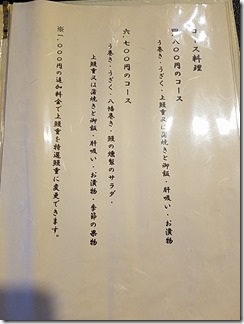 コース料理
四.八〇〇円のコース
う巻き・うざく・上鰻重又は蒲焼きと御飯・肝吸い・お漬物
六.七〇〇円のコース
う巻き・うざく・八幡巻き・鰻の燻製のサラダ・
上鰻重又は蒲焼きと御飯・肝吸い・お漬物・季節の果物
※一.〇〇〇円の追加料金で上鰻重を特選鰻重に変更できます。